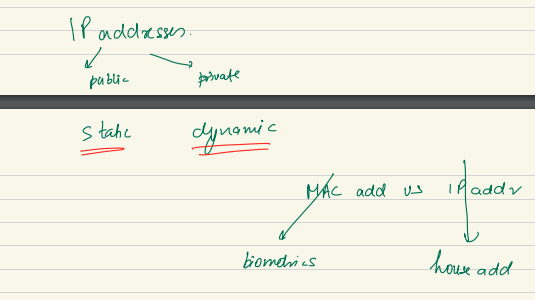 IP addresses.
public private
static dynamic
MAC add vs IP addr
biometrics house add